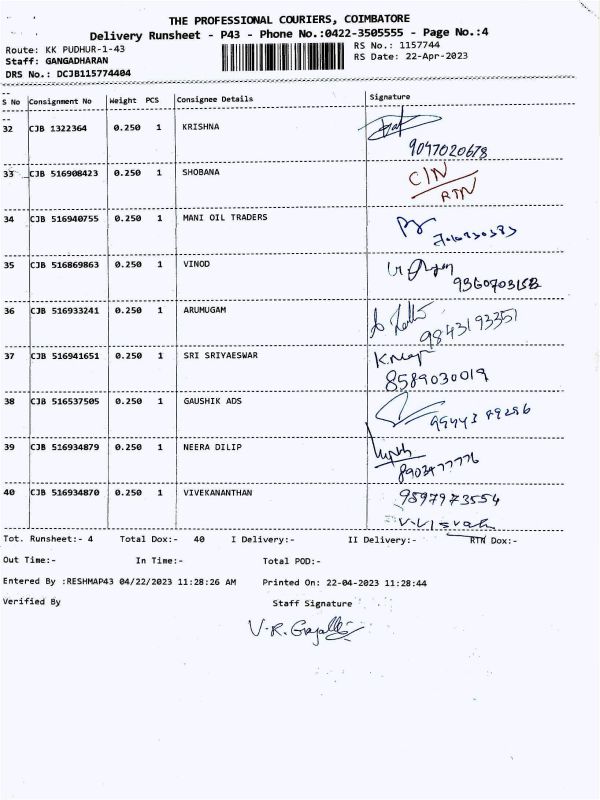 THE PROFESSIONAL COURIERS, COIMBATORE
Delivery Runsheet - P43 - Phone No.:0422-3505555 - Page No.:4
Route: KK PUDHUR-1-43
RS No.: 1157744
Staff: GANGADHARAN
RS Date: 22-Apr-2023
DRS No.: DCJB115774404
S No Consignment No Weight PCS Consignee Details Signature
32 CJB 1322364 0.250 1 KRISHNA
9047020678
33 CJB 516908423 0.250 1 SHOBANA C/N
RTN
34 CJB 516940755 0.250 1 MANI OIL TRADERS
35 CJB 516869863 0.250 1 VINOD
36 CJB 516933241 0.250 1 ARUMUGAM
9843193351
37 CJB 516941651 0.250 1 SRI SRIYAESWAR
8589030019
38 CJB 516537505 0.250 1 GAUSHIK ADS
39 CJB 516934879 0.250 1 NEERA DILIP
40 CJB 516934870 0.250 1 VIVEKANANTHAN
Tot. Runsheet:- 4 Total Dox:- 40 I Delivery:- II Delivery:- RTN Dox:-
Out Time:- In Time:- Total POD:-
Entered By :RESHMAP43 04/22/2023 11:28:26 AM Printed On: 22-04-2023 11:28:44
Verified By Staff Signature